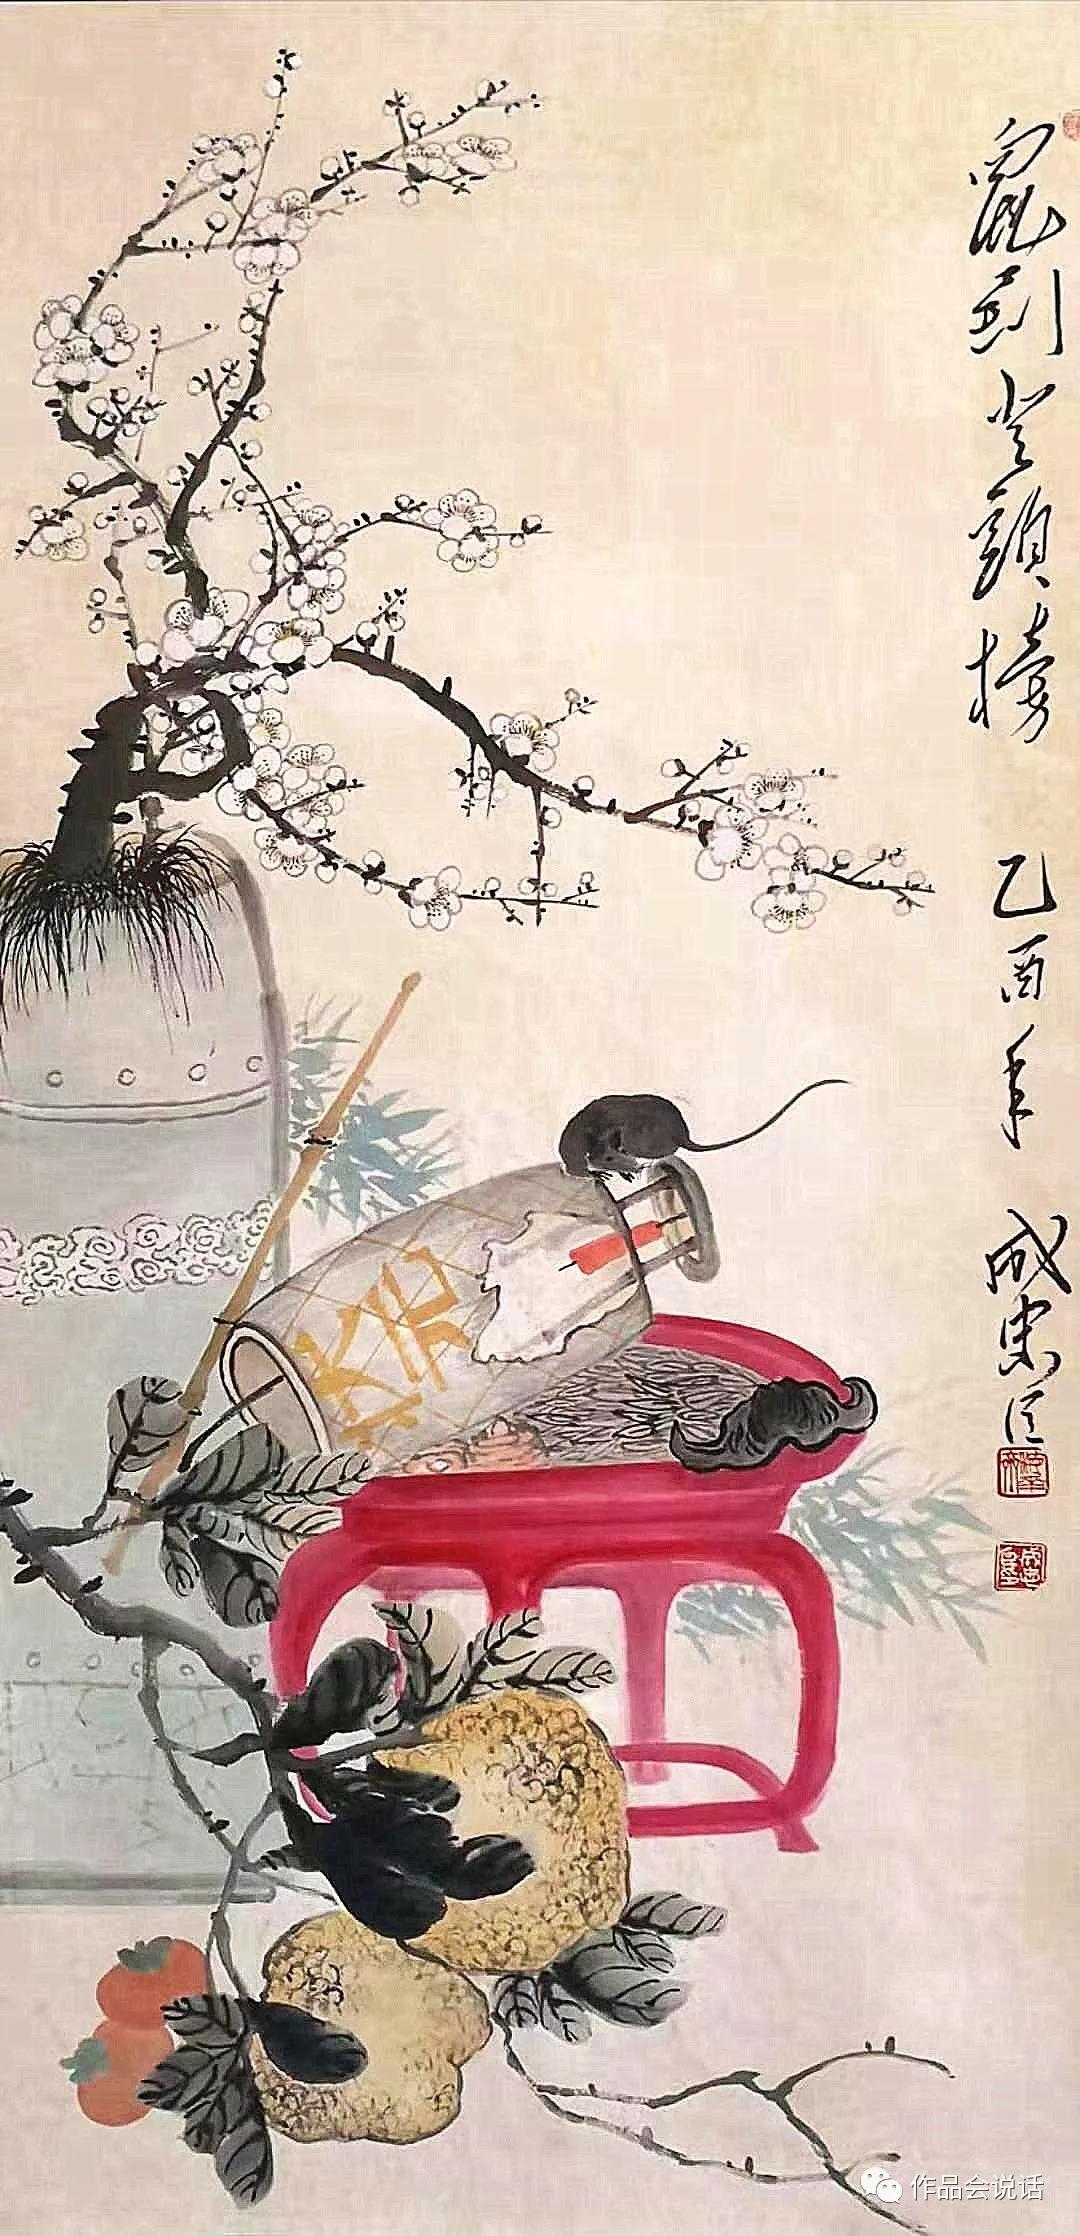 鼠到登頭榜 乙酉年 成忠臣
作品会说话